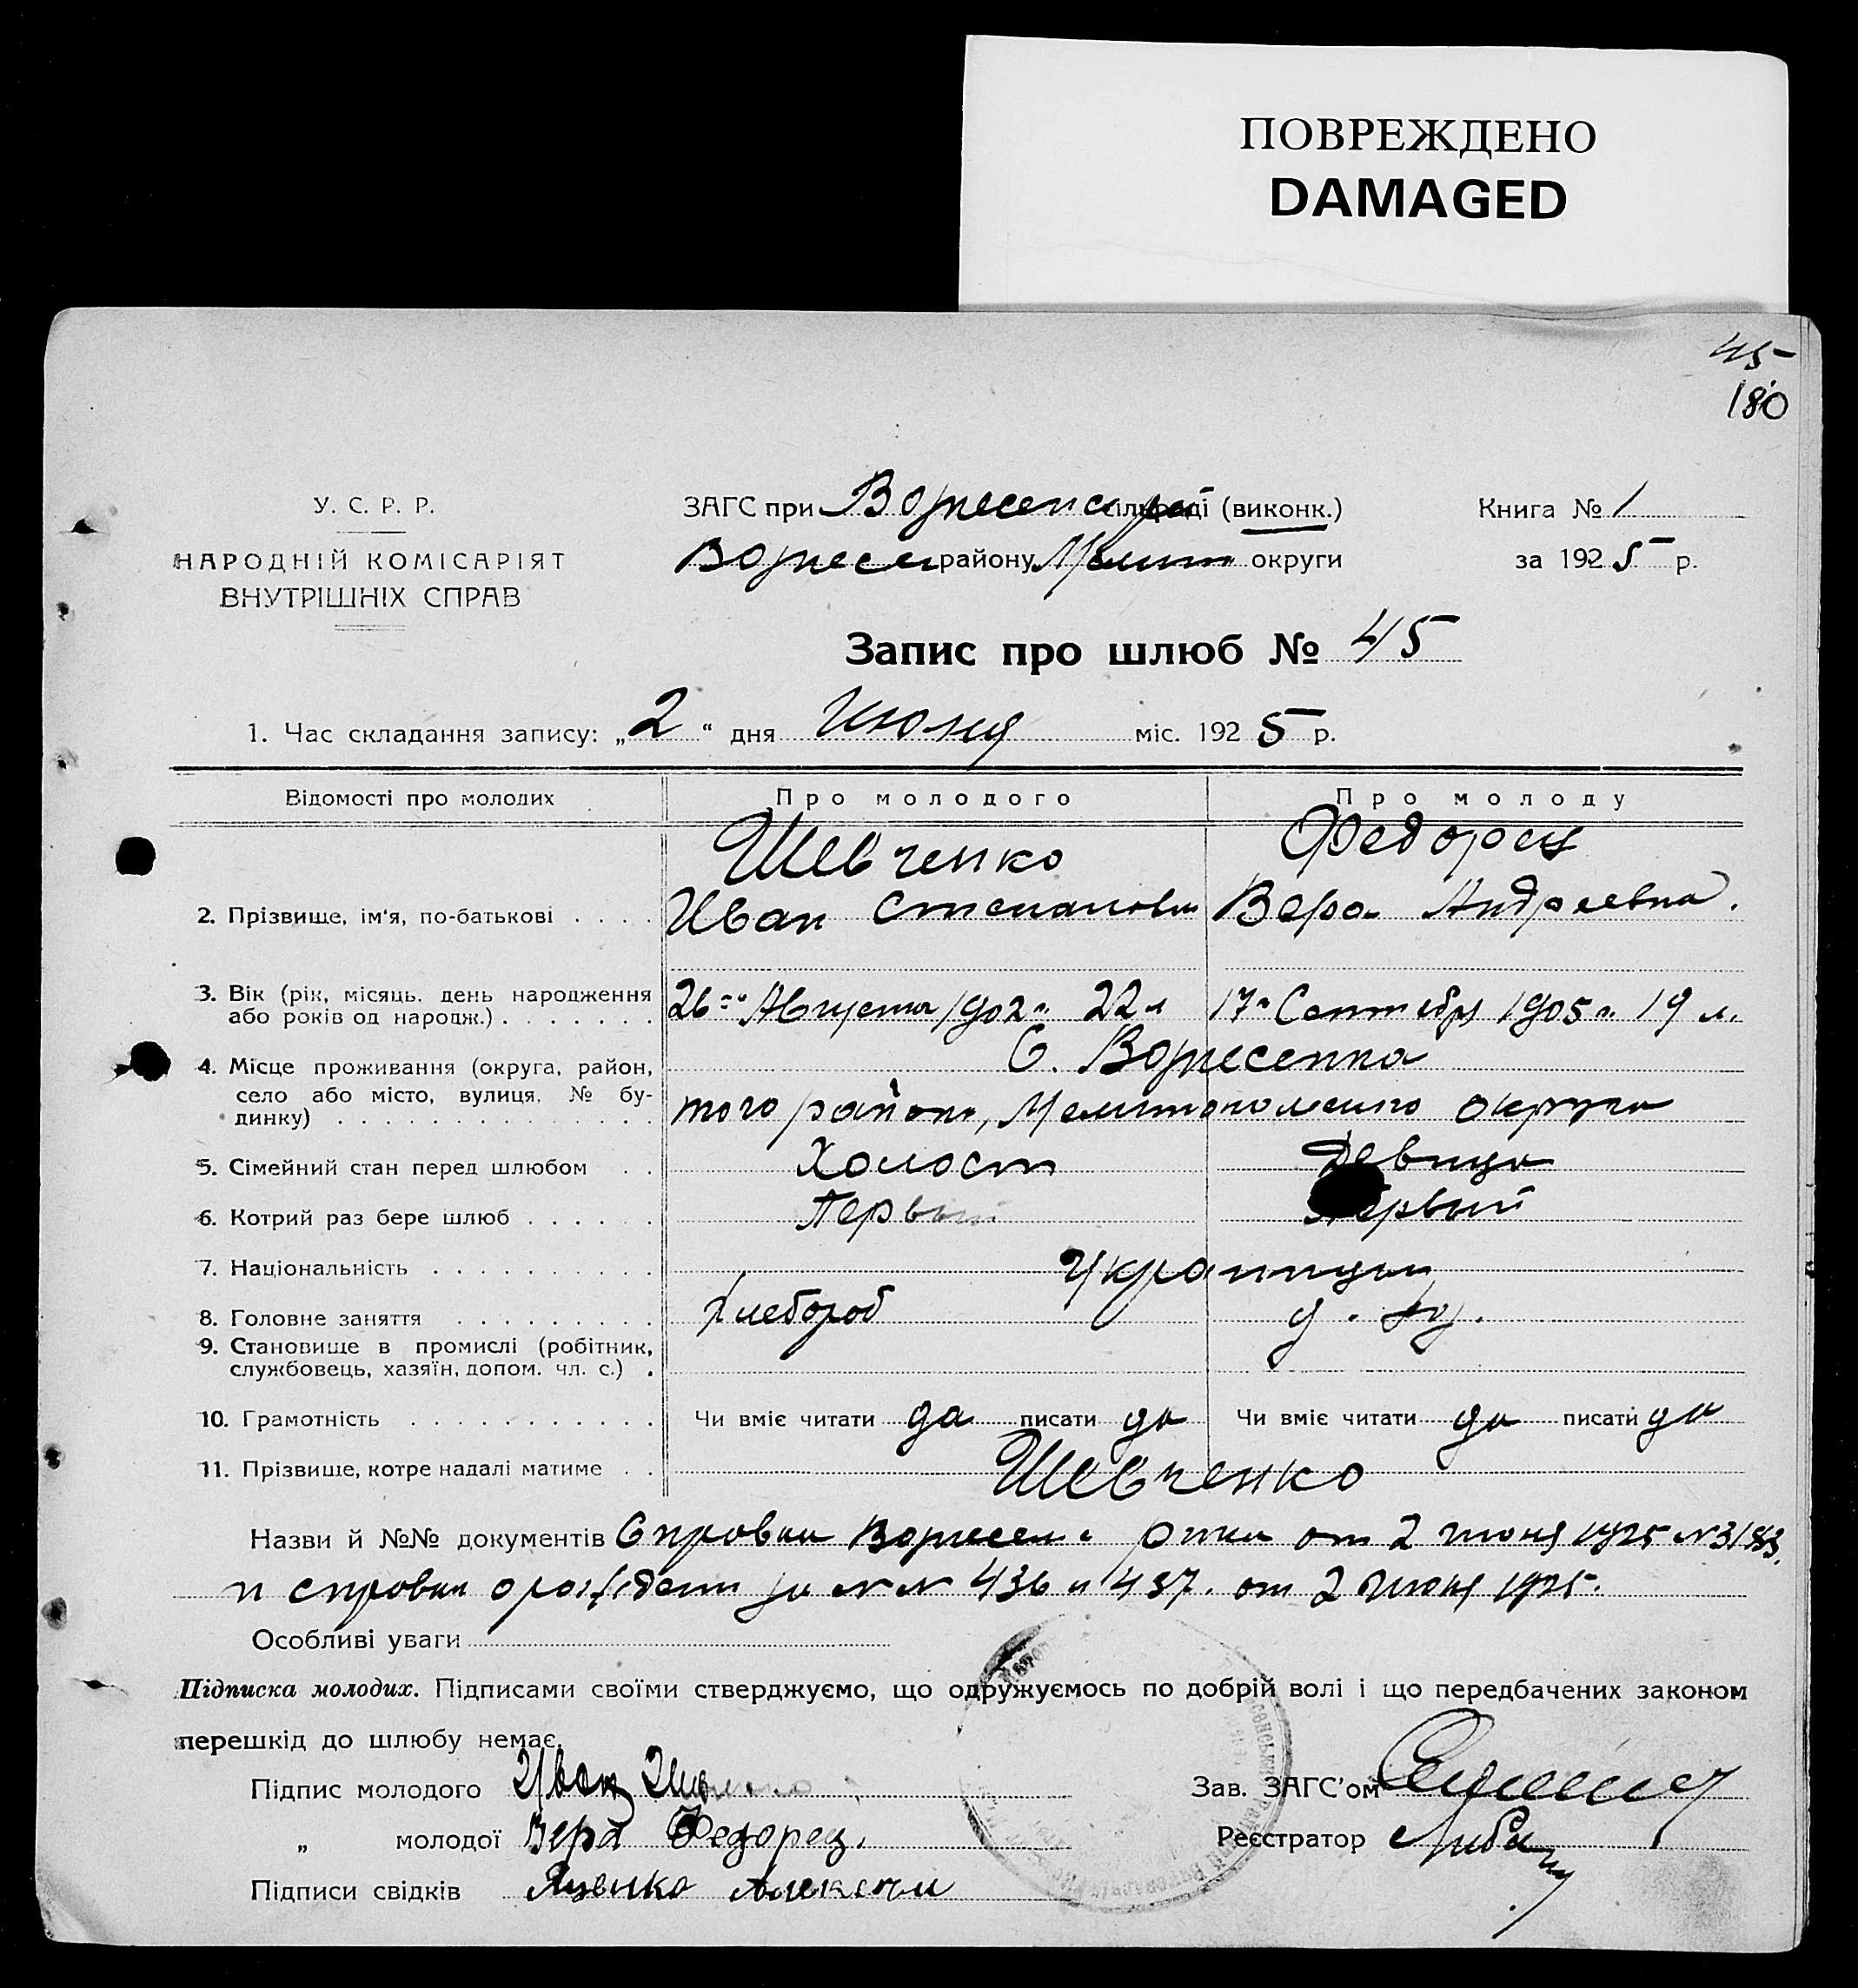 ПОВРЕЖДЕНО
DAMAGED
45
180
У. С. Р. Р.
НАРОДНІЙ КОМІСАРІЯТ
ВНУТРІШНІХ СПРАВ
ЗАГС при Вознесенськ сільраді (виконк.)
Вознесен району Мелит округи
Книга № 1
за 1925 р.
Запис про шлюб № 45
1. Час складання запису: „2“ дня Июня міс. 1925 р.
Відомості про молодих Про молодого Про молоду
Шевченко Федорец
2. Прізвище, ім'я, по-батькові Иван Степанови Вера Андреевна.
3. Вік (рік, місяць. день народження
або років од народж.) 26го Августа 1902г. 22л 17го Сентября 1905г. 19 л.
4. Місце проживання (округа, район, С. Вознесенка
село або місто, вулиця. № бу-
динку) того района, Мелитопольского округа
5. Сімейний стан перед шлюбом Холост Девица
6. Котрий раз бере шлюб Первый Первый
7. Національність Украинцы
8. Головне заняття Хлебороб д. хоз.
9. Становище в промислі (робітник,
службовець, хазяїн, допом. чл. с.)
10. Грамотність Чи вміє читати да писати да Чи вміє читати да писати да
11. Прізвище, котре надалі матиме Шевченко
Назви й №№ документів Справки Вознесен. от 2 июня 1925 №3183.
и справки за №№ 436 и 437. от 2 июня 1925.
Особливі уваги
Підписка молодих. Підписами своїми стверджуємо, що одружуємось по добрій волі і що передбачених законом
перешкід до шлюбу немає.
Підпис молодого Иван
„ молодої Вера Федорец.
Підписи свідків Яценко Алексей
Зав. ЗАГС'ом
Реєстратор